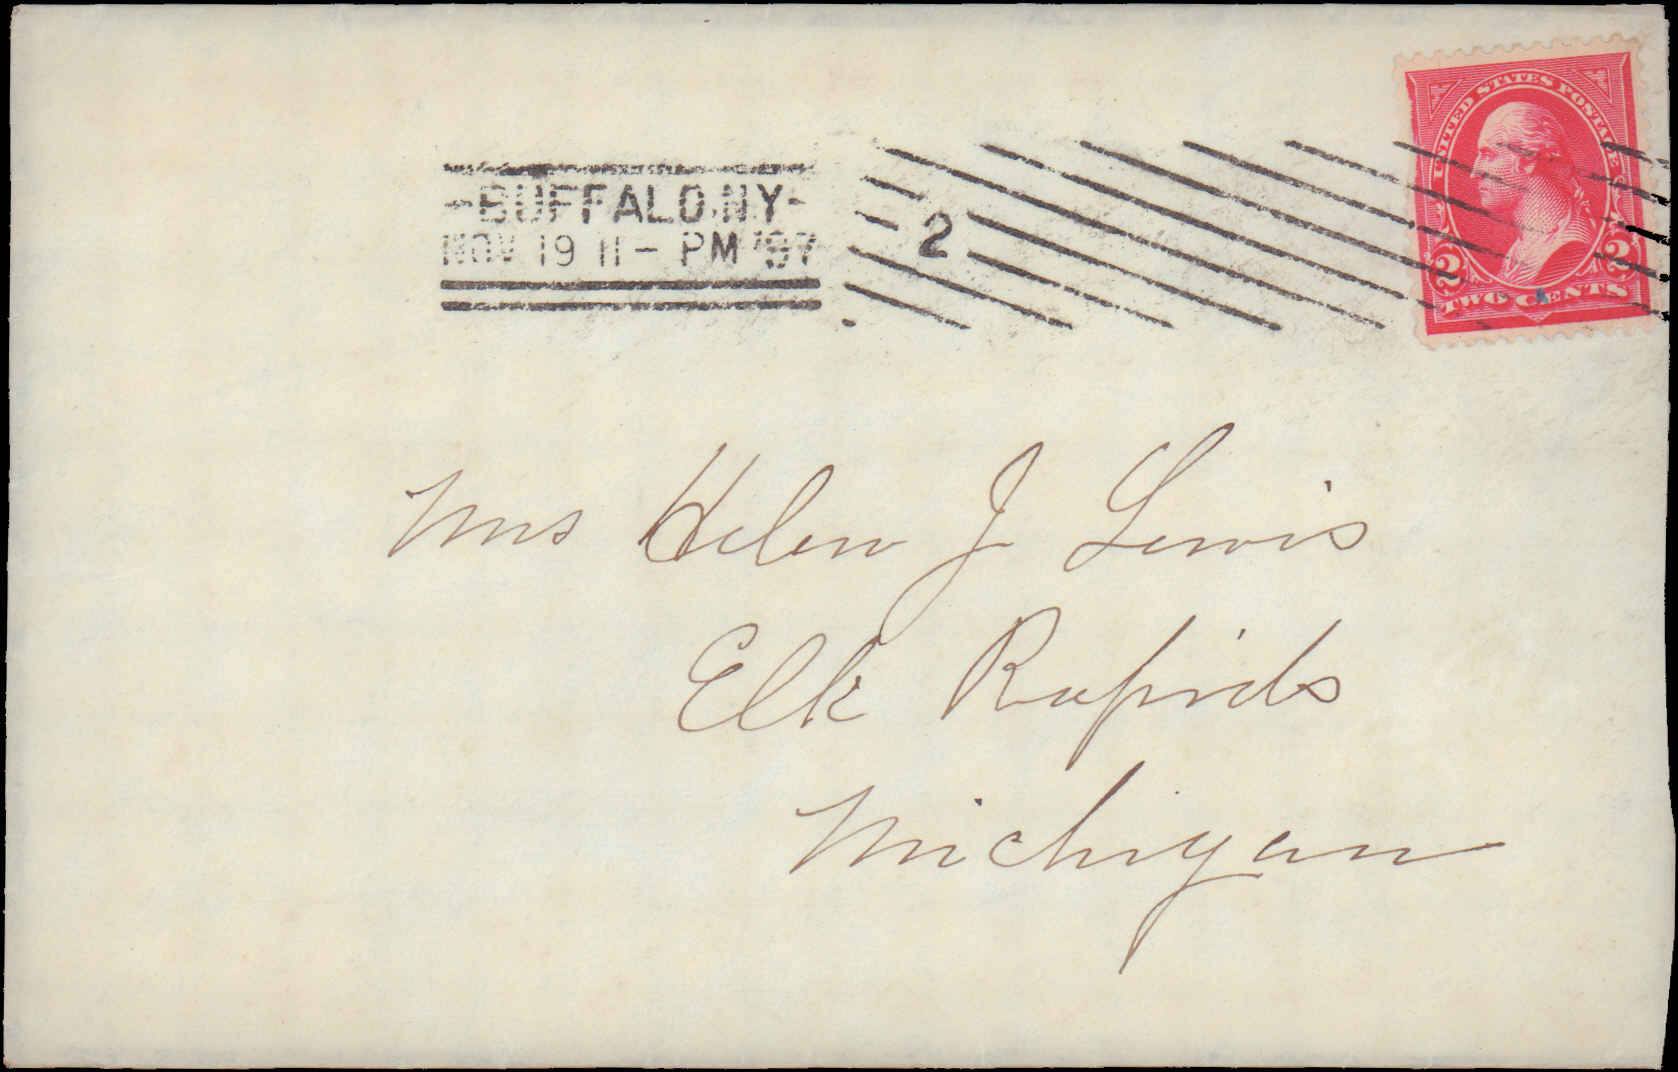 UNITED STATES POSTAGE
2 2
TWO CENTS
-BUFFALO, N.Y-
NOV 19 11- PM '97
2
Mrs Helen J Lewis
Elk Rapids
Michigan